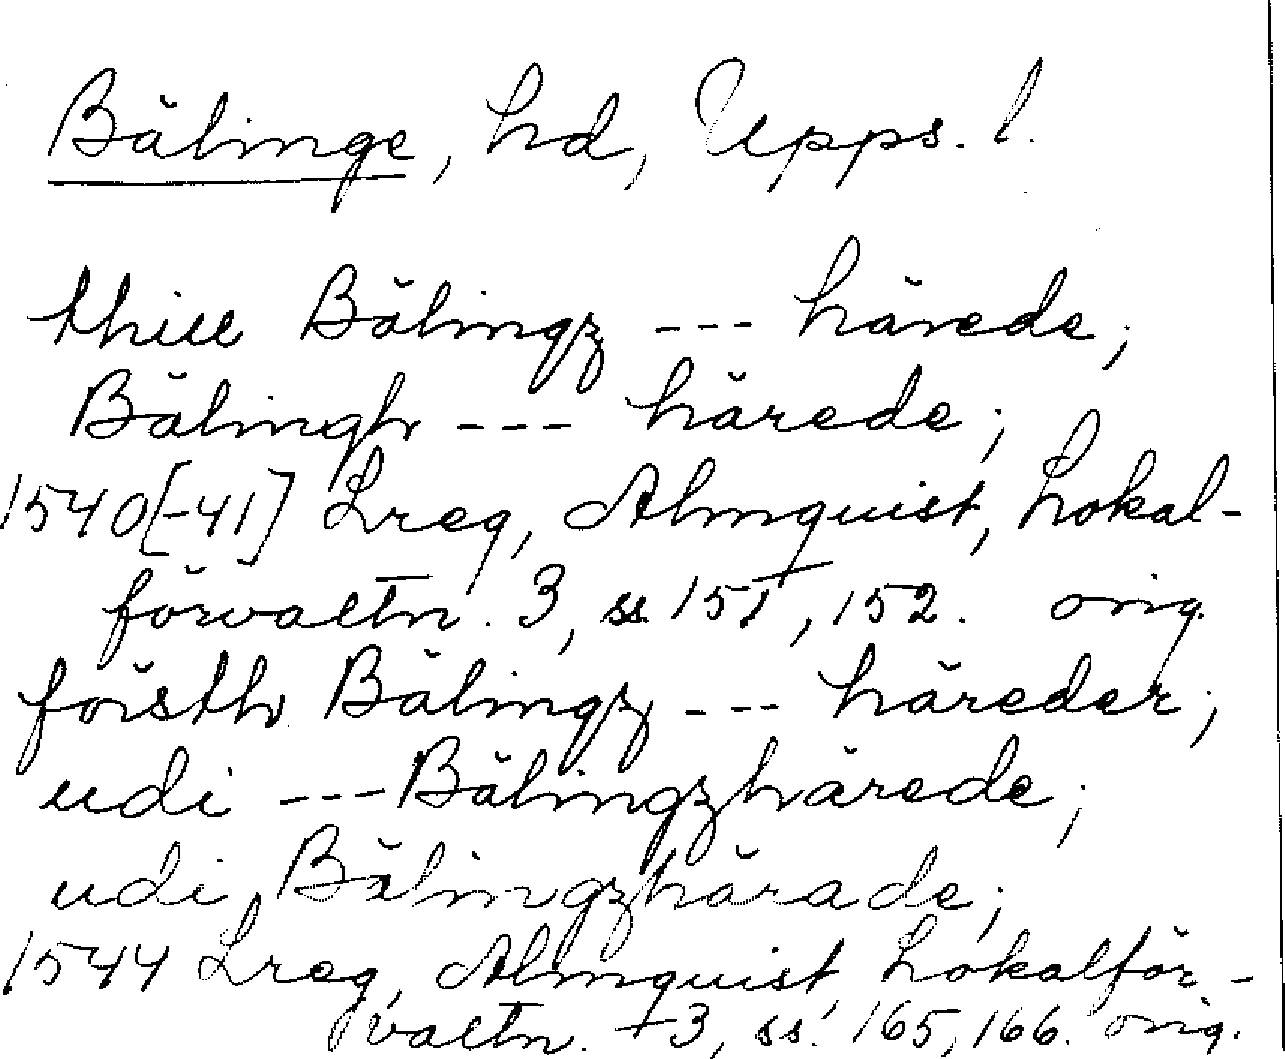 Bälinge, hd, Upps. l.
thill Bälingz --- härede;
Bälingh --- härede;
1540[-41] Lreg, Almquist, Lokal-
förvaltn. 3, ss. 151, 152. orig.
försth Bälingz --- häreder;
udi --- Bälingzhärede;
udi Bälingzhärade;
1544 Lreg, Almquist, Lokalför-
valtn. 3, ss. 165, 166. orig.